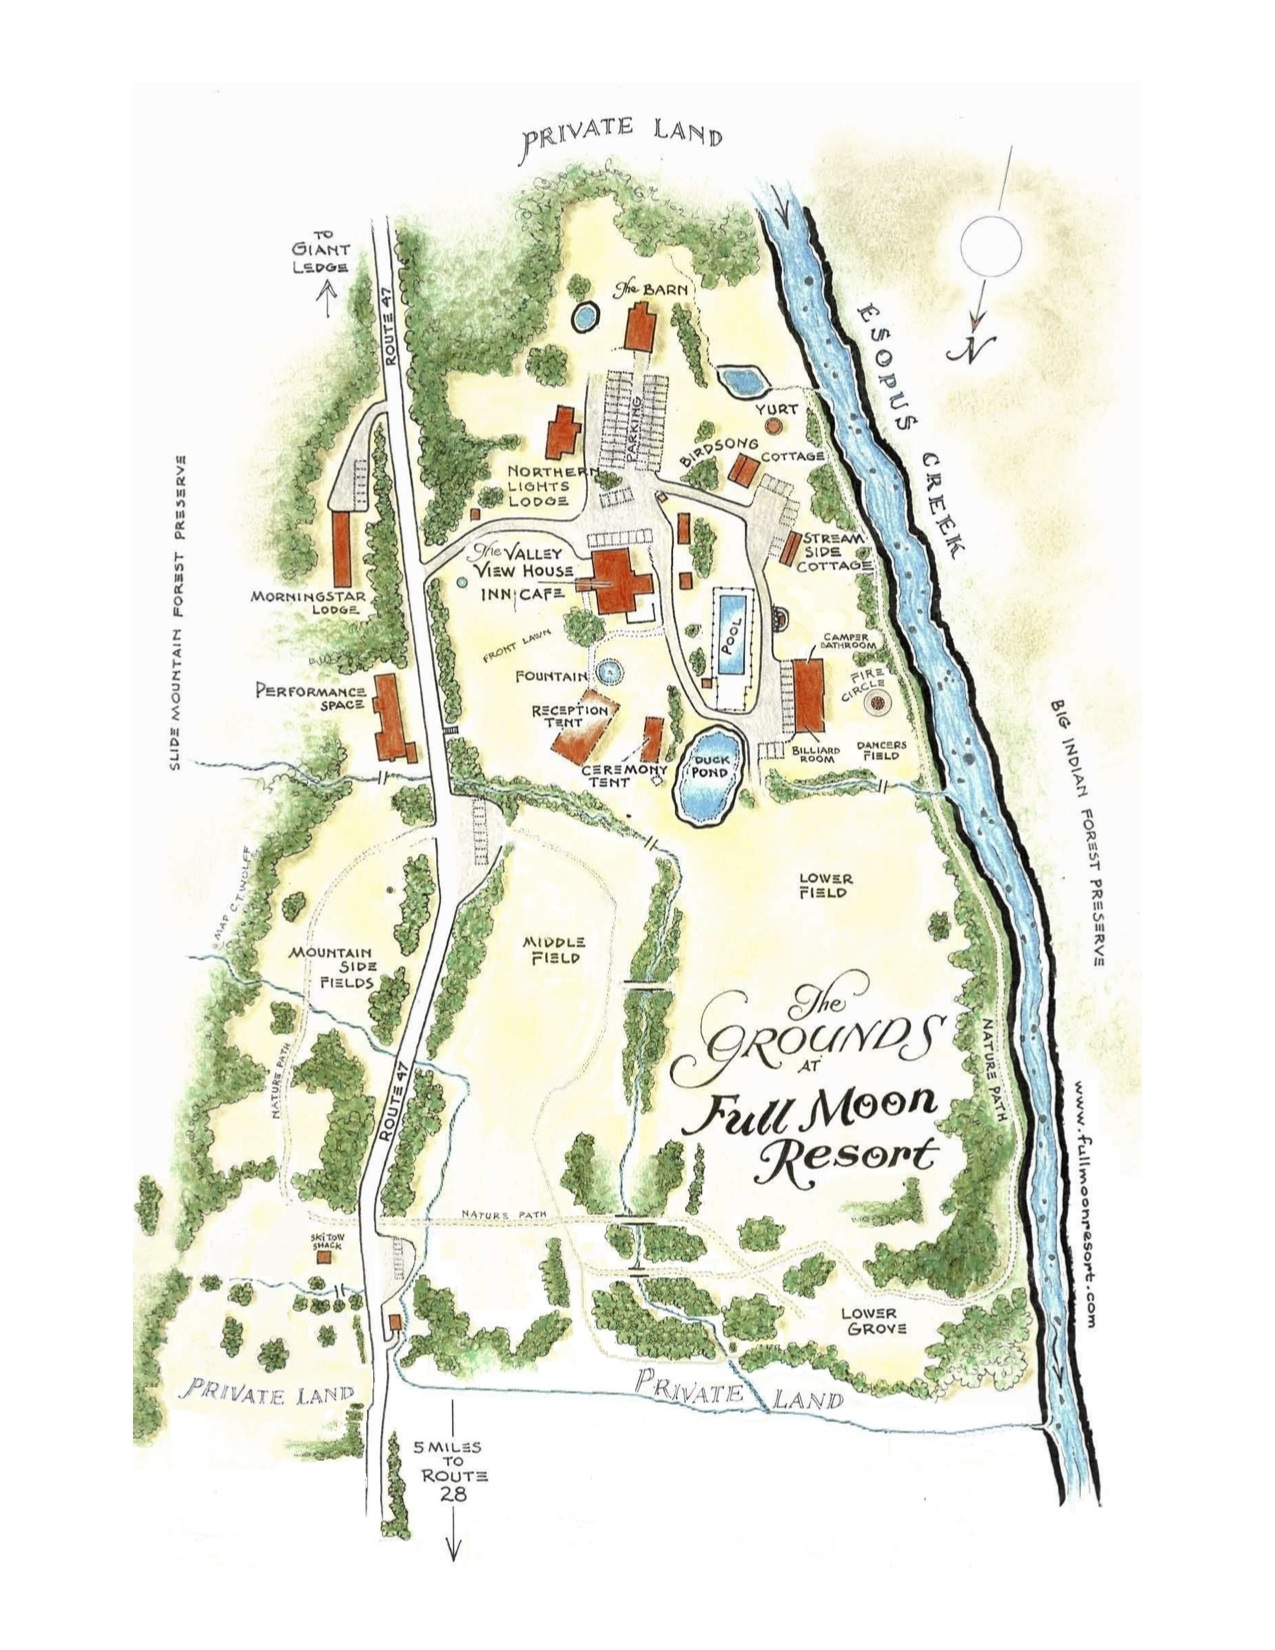 PRIVATE LAND
TO
GIANT
LEDGE
ROUTE 47
The BARN
ESOPUS CREEK
N
PARKING
YURT
BIRDSONG
COTTAGE
NORTHERN
LIGHTS
LODGE
SLIDE MOUNTAIN FOREST PRESERVE
The VALLEY
VIEW HOUSE
INN CAFE
STREAM
SIDE
COTTAGE
MORNINGSTAR
LODGE
FRONT LAWN
POOL
CAMPER
BATHROOM
FOUNTAIN
FIRE
CIRCLE
PERFORMANCE
SPACE
RECEPTION
TENT
BILLIARD
ROOM
DANCERS
FIELD
CEREMONY
TENT
DUCK
POND
BIG INDIAN FOREST PRESERVE
© MAP C.T. WOLFF
LOWER
FIELD
MIDDLE
FIELD
MOUNTAIN
SIDE
FIELDS
The
GROUNDS
AT
Full Moon
Resort
NATURE PATH
NATURE PATH
ROUTE 47
www.fullmoonresort.com
NATURE PATH
SKI TOW
SHACK
LOWER
GROVE
PRIVATE LAND
PRIVATE LAND
5 MILES
TO
ROUTE
28